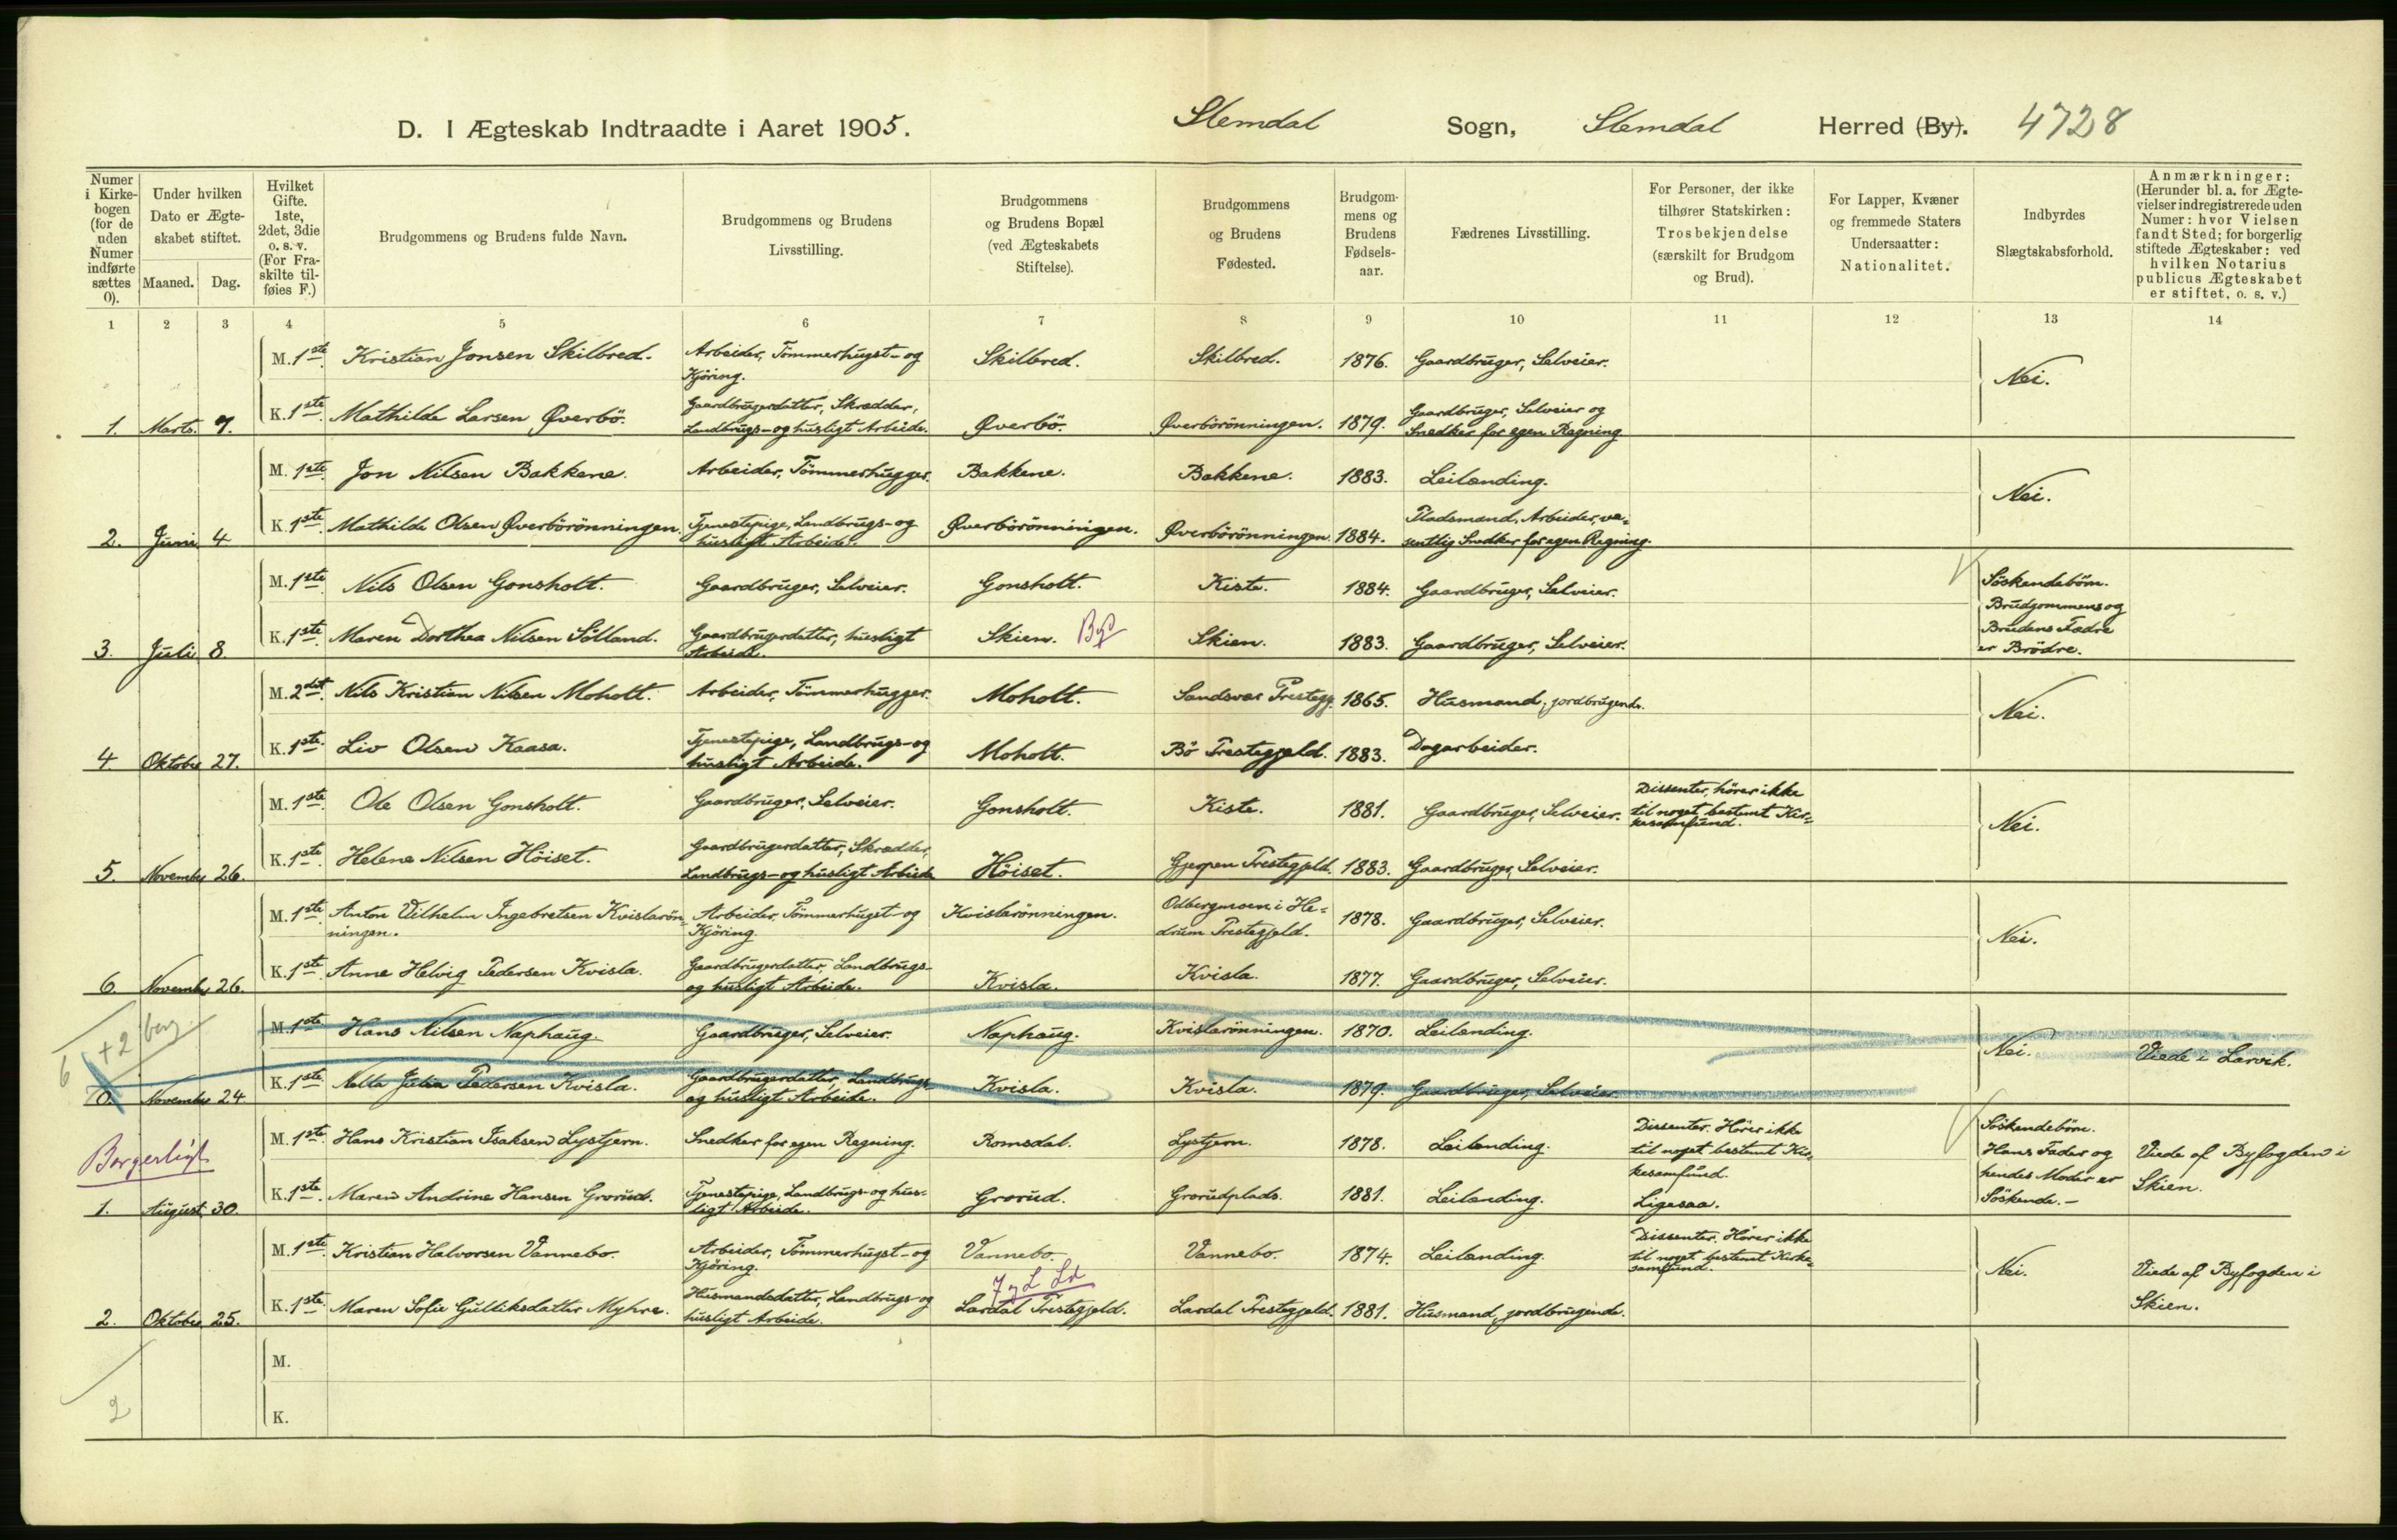 D. I Ægteskab Indtraadte i Aaret 1905. Slemdal Sogn, Slemdal Herred (By). 4728
Numer i Kirkebogen (for de uden Numer indførte sættes 0).
Under hvilken Dato er Ægteskabet stiftet.
Maaned. Dag.
Hvilket Gifte. 1ste, 2det, 3die o. s. v. (For Fraskilte tilføies F.)
Brudgommens og Brudens fulde Navn.
Brudgommens og Brudens Livsstilling.
Brudgommens og Brudens Bopæl (ved Ægteskabets Stiftelse).
Brudgommens og Brudens Fødested.
Brudgommens og Brudens Fødselsaar.
Fædrenes Livsstilling.
For Personer, der ikke tilhører Statskirken: Trosbekjendelse (særskilt for Brudgom og Brud).
For Lapper, Kvæner og fremmede Staters Undersaatter: Nationalitet.
Indbyrdes Slægtskabsforhold.
Anmærkninger: (Herunder bl. a. for Ægtevielser indregistrerede uden Numer: hvor Vielsen fandt Sted; for borgerlig stiftede Ægteskaber: ved hvilken Notarius publicus Ægteskabet er stiftet, o. s. v.)
1 2 3 4 5 6 7 8 9 10 11 12 13 14
M. 1ste. Kristian Jonsen Skilbred. Arbeider, Tömmerhugst- og Kjöring. Skilbred. Skilbred. 1876. Gaardbruger, Selveier. Nei.
1. Marts. 7. K. 1ste. Mathilde Larsen Øverbö. Gaardbrugerdatter, Skrædder, Landbrugs- og husligt Arbeide. Øverbö. Øverbörönningen. 1879. Gaardbruger, Selveier og Snedker for egen Regning
M. 1ste. Jon Nilsen Bakkene. Arbeider, Tömmerhugger. Bakkene. Bakkene. 1883. Leilænding. Nei.
2. Juni 4 K. 1ste. Mathilde Olsen Øverbörönningen. Tjenestepige, Landbrugs- og husligt Arbeide. Øverbörönningen. Øverbörönningen. 1884. Pladsmand, Arbeider, væsentlig Snedker for egen Regning.
M. 1ste. Nils Olsen Gonsholt. Gaardbruger, Selveier. Gonsholt. Kiste. 1884. Gaardbruger, Selveier. Söskendebörn. Brudgommens og Brudens Fædre er Brödre.
3. Juli 8. K. 1ste. Maren Dorthea Nilsen Sölland. Gaardbrugerdatter, husligt Arbeide. Skien. By Skien. 1883. Gaardbruger, Selveier.
M. 2det. Nils Kristian Nilsen Moholt. Arbeider, Tömmerhugger. Moholt. Sandsvær Prestegj. 1865. Husmand, jordbrugende. Nei.
4. Oktober 27. K. 1ste. Liv Olsen Kaasa. Tjenestepige, Landbrugs- og husligt Arbeide. Moholt. Bö Prestegjeld. 1883. Dagarbeider.
M. 1ste. Ole Olsen Gonsholt. Gaardbruger, Selveier. Gonsholt. Kiste. 1881. Gaardbruger, Selveier. Dissenter, hörer ikke til noget bestemt Kirkesamfund. Nei.
5. November 26. K. 1ste. Helene Nilsen Höiset. Gaardbrugerdatter, Skrædder, Landbrugs- og husligt Arbeide Höiset. Gjerpen Prestegjeld. 1883. Gaardbruger, Selveier.
M. 1ste. Anton Vilhelm Ingebretsen Kvislarönningen. Arbeider, Tömmerhugst- og Kjöring. Kvislarönningen. Odbergmoen i Hedrum Prestegjeld. 1878. Gaardbruger, Selveier. Nei.
6. November 26. K. 1ste. Anne Helvig Pedersen Kvisla. Gaardbrugerdatter, Landbrugs- og husligt Arbeide. Kvisla. Kvisla. 1877. Gaardbruger, Selveier.
6 + 2 borg
M. 1ste Hans Nilsen Naphaug. Gaardbruger, Selveier. Naphaug. Kvislarönningen. 1870. Leilænding. Nei. Viede i Larvik.
0. November 24. K. 1ste Nella Julia Pedersen Kvisla. Gaardbrugerdatter, Landbrugs- og husligt Arbeide. Kvisla. Kvisla. 1879. Gaardbruger, Selveier.
Borgerligt
M. 1ste. Hans Kristian Isaksen Lystjern. Snedker for egen Regning. Romsdal. Lystjern. 1878. Leilænding. Dissenter. Hörer ikke til noget bestemt Kirkesamfund. Söskendebörn. Hans Fader og hendes Moder er Söskende. — Viede af Byfogden i Skien.
1. August 30. K. 1ste. Maren Andrine Hansen Grorud. Tjenestepige, Landbrugs- og husligt Arbeide. Grorud. Grorudplads. 1881. Leilænding. Ligesaa.
M. 1ste. Kristian Halvorsen Vannebo. Arbeider, Tömmerhugst- og Kjöring. Vannebo. Vannebo. 1874. Leilænding. Dissenter. Hörer ikke til noget bestemt Kirkesamfund. Nei. Viede af Byfogden i Skien.
2. Oktober 25. K. 1ste. Maren Sofie Gulliksdatter Myhre. Husmandsdatter, Landbrugs- og husligt Arbeide. Lardal Prestegjeld. Lardal Prestegjeld. 1881. Husmand, jordbrugende.
M.
2
K.